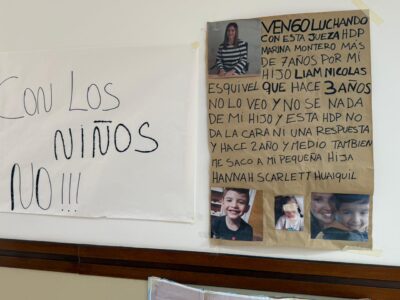 CON LOS
NIÑOS
NO!!!
VENGO LUCHANDO
CON ESTA JUEZA HDP
MARINA MONTERO MAS
DE 7AÑOS POR MI
HIJO LIAM NICOLAS
ESQUIVEL QUE HACE 3AÑOS
NO LO VEO Y NO SE NADA
DE MI HIJO Y ESTA HDP NO
DA LA CARA NI UNA RESPUESTA
Y HACE 2AÑO Y MEDIO TAMBIEN
ME SACO A MI PEQUEÑA HIJA
HANNAH SCARLETT HUAIQUIL